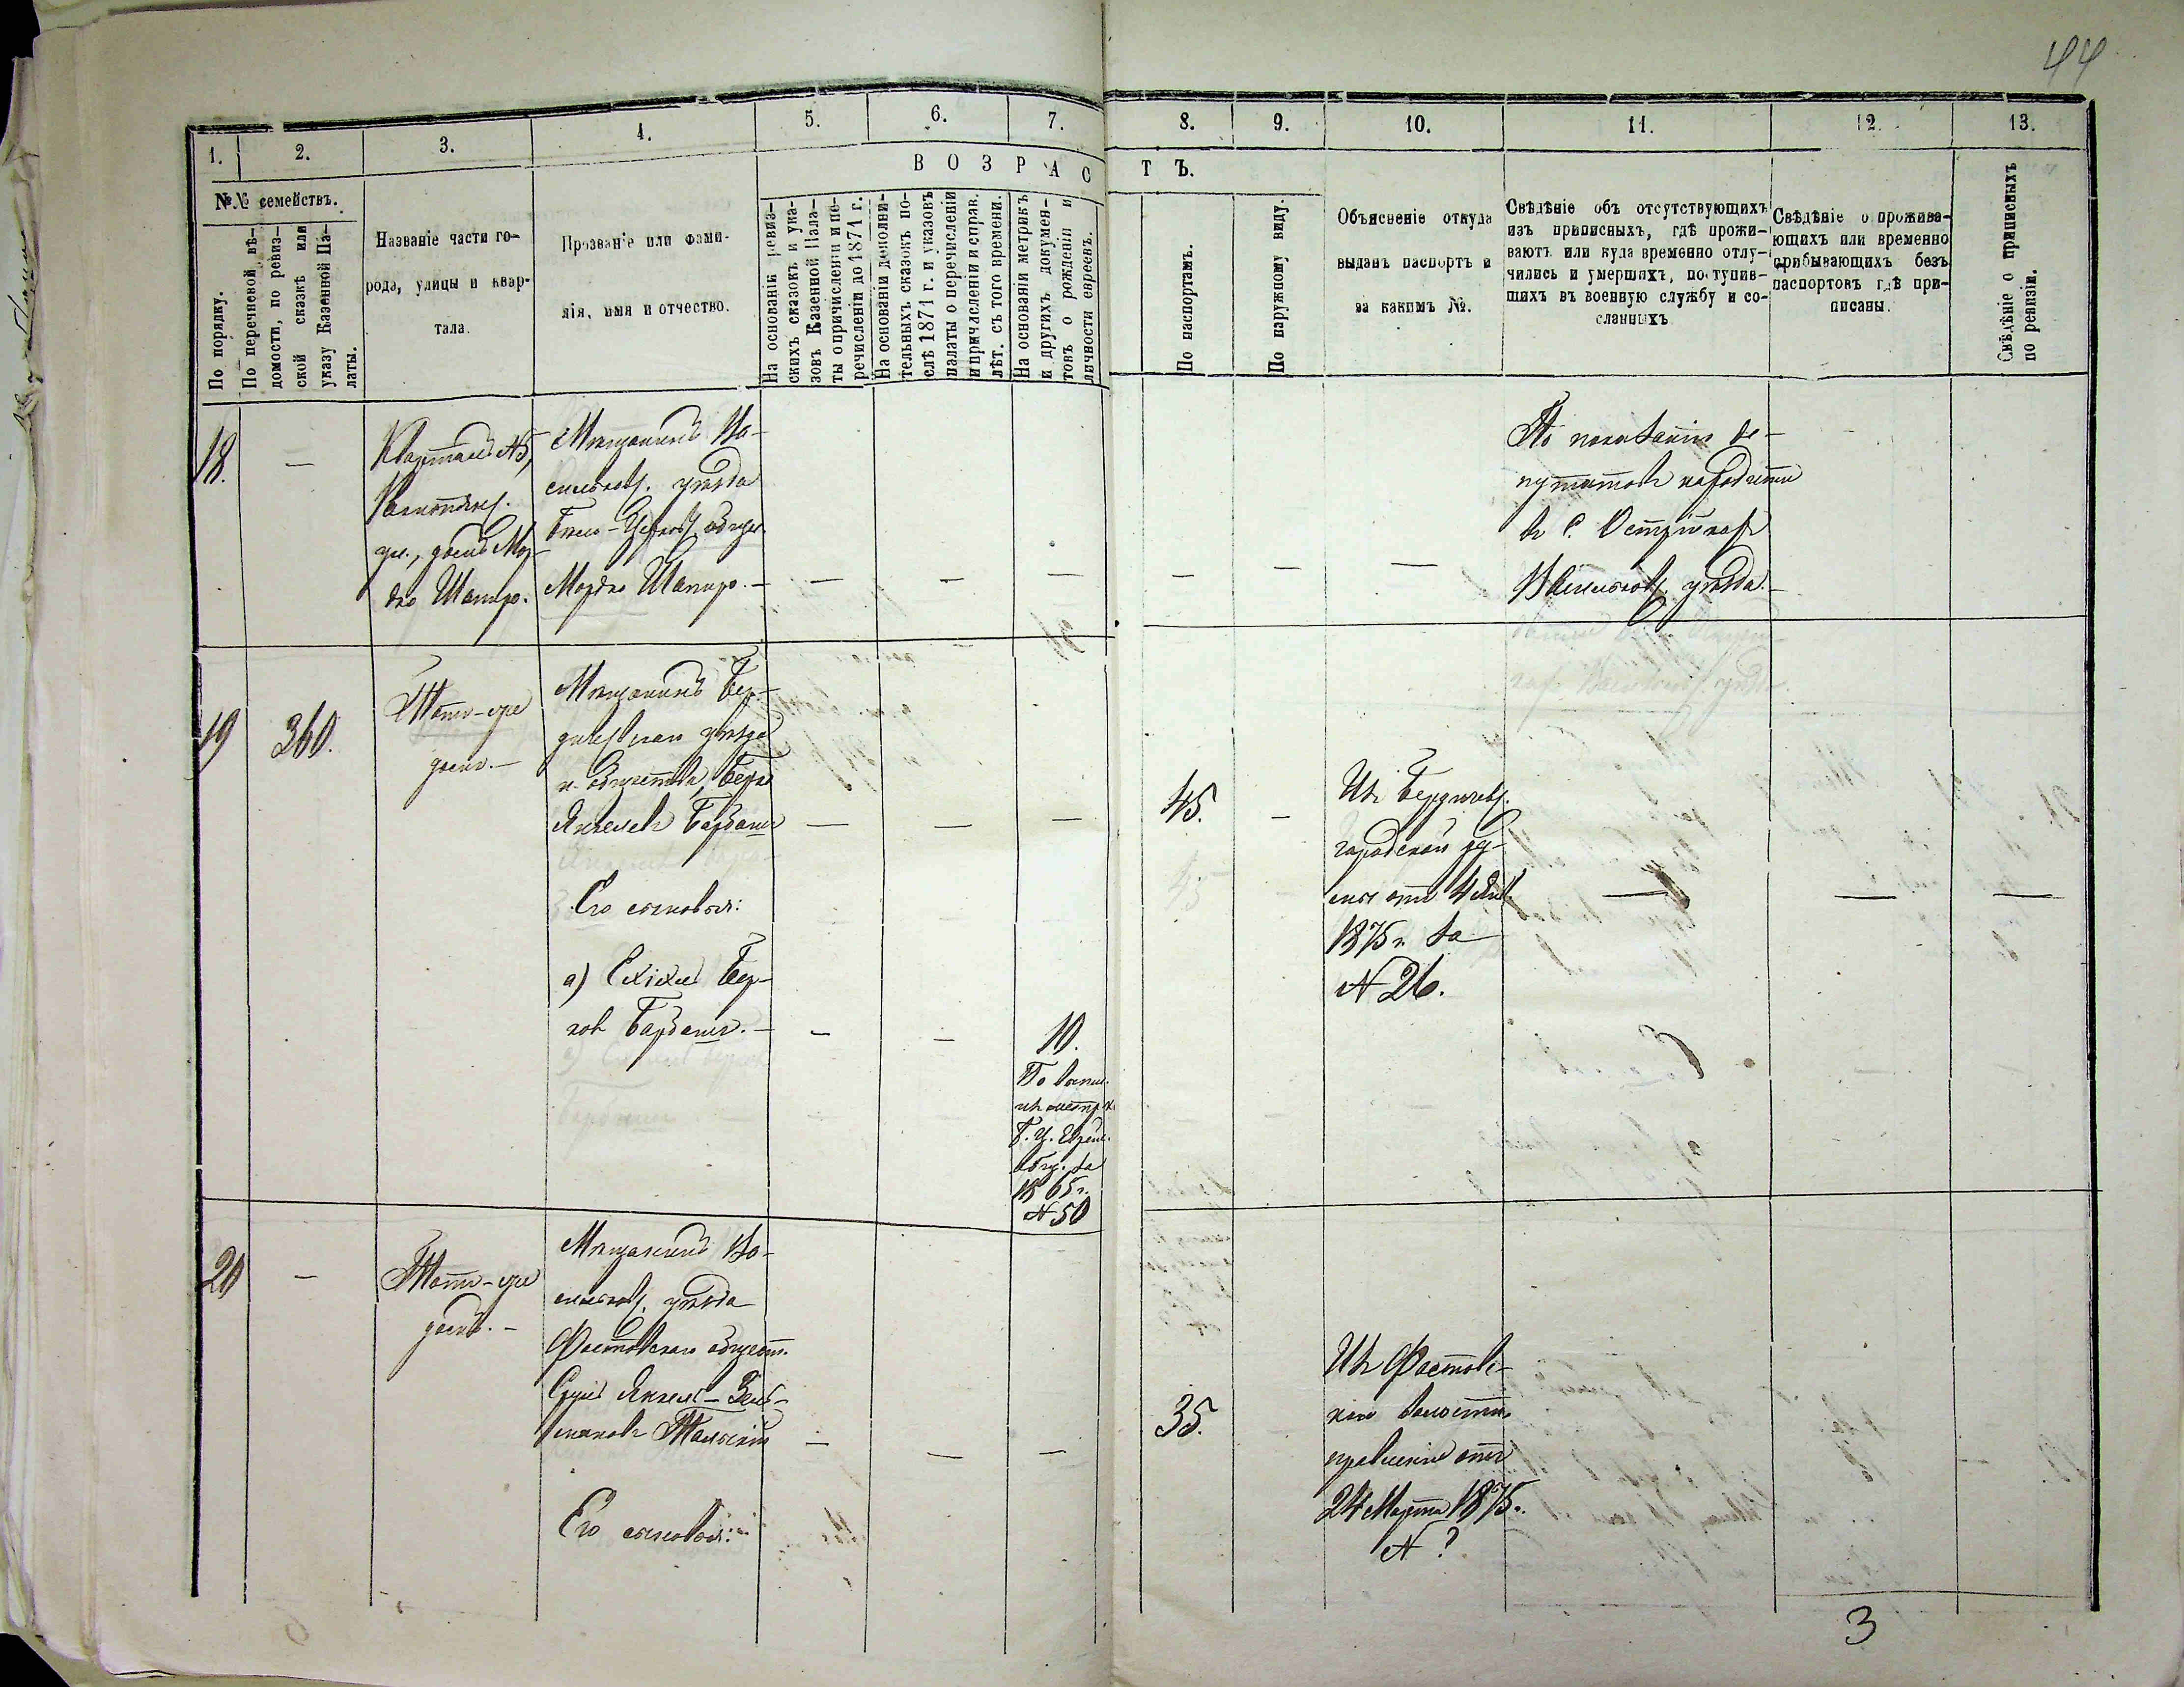 44
1. 2. 3. 4. 5. 6. 7. 8. 9. 10. 11. 12. 13.
В О З Р А С Т Ъ.
№№ семействъ.
По порядку.
По перечневой вѣ-
домости, по ревиз-
ской сказкѣ или
указу Казенной Па-
латы.
Названіе части го-
рода, улицы и квар-
тала.
Прозваніе или фами-
лія, имя и отчество.
На основаніи ревиз-
скихъ сказокъ и ука-
зовъ Казенной Пала-
ты о причисленіи и пе-
речисленіи до 1871 г.
На основаніи дополни-
тельныхъ сказокъ по-
слѣ 1871 г. и указовъ
палаты о перечисленіи
и причисленіи и справ.
лѣт. съ того времени.
На основаніи метрикъ
и другихъ докумен-
товъ о рожденіи и
личности евреевъ.
По паспортамъ.
По наружному виду.
Объясненіе откуда
выданъ паспортъ и
за какимъ №.
Свѣдѣніе объ отсутствующихъ
изъ приписныхъ, гдѣ прожи-
ваютъ или куда временно отлу-
чились и умершихъ, поступив-
шихъ въ военную службу и со-
сланныхъ
Свѣдѣніе о прожива-
ющихъ или временно
прибывающихъ безъ
паспортовъ гдѣ при-
писаны.
Свѣдѣніе о приписныхъ
по ревизіи.
18. —
Кварталъ №5,
ул., домъ Мор-
дко Шапиро.
Мѣщанинъ Ва-
сильков. уѣзда
Бѣло-Церков. общес.
Мордко Шапиро. — — — — — — —
По показанію де-
путатовъ находится
въ С.
Васильков. уѣзда. —
19 360.
Тотъ-же
домъ. —
Мѣщанинъ Бер-
дичевскаго уѣзда
и общества, Берко
Янкелевъ Барбашъ — — — 45. —
Его сыновья:
а) Бер-
ковъ Барбашъ. — — — 10.
По выпис.
изъ метрик.
Б. Ц. Еврейс.
общ. за
1865 г.
№ 50
Изъ Бердичев.
городской ду-
мы отъ 4 Янв.
1875 г. за
№ 26.
— — —
20 —
Тотъ-же
домъ. —
Мѣщанинъ Ва-
сильков. уѣзда
Фастовскаго общест.
Сруль Янкель-Зель-
мановъ — — — 35.
Его сыновья:
Изъ Фастовс-
каго волостн.
правленія отъ
24 Марта 1875 г.
№ ?
3